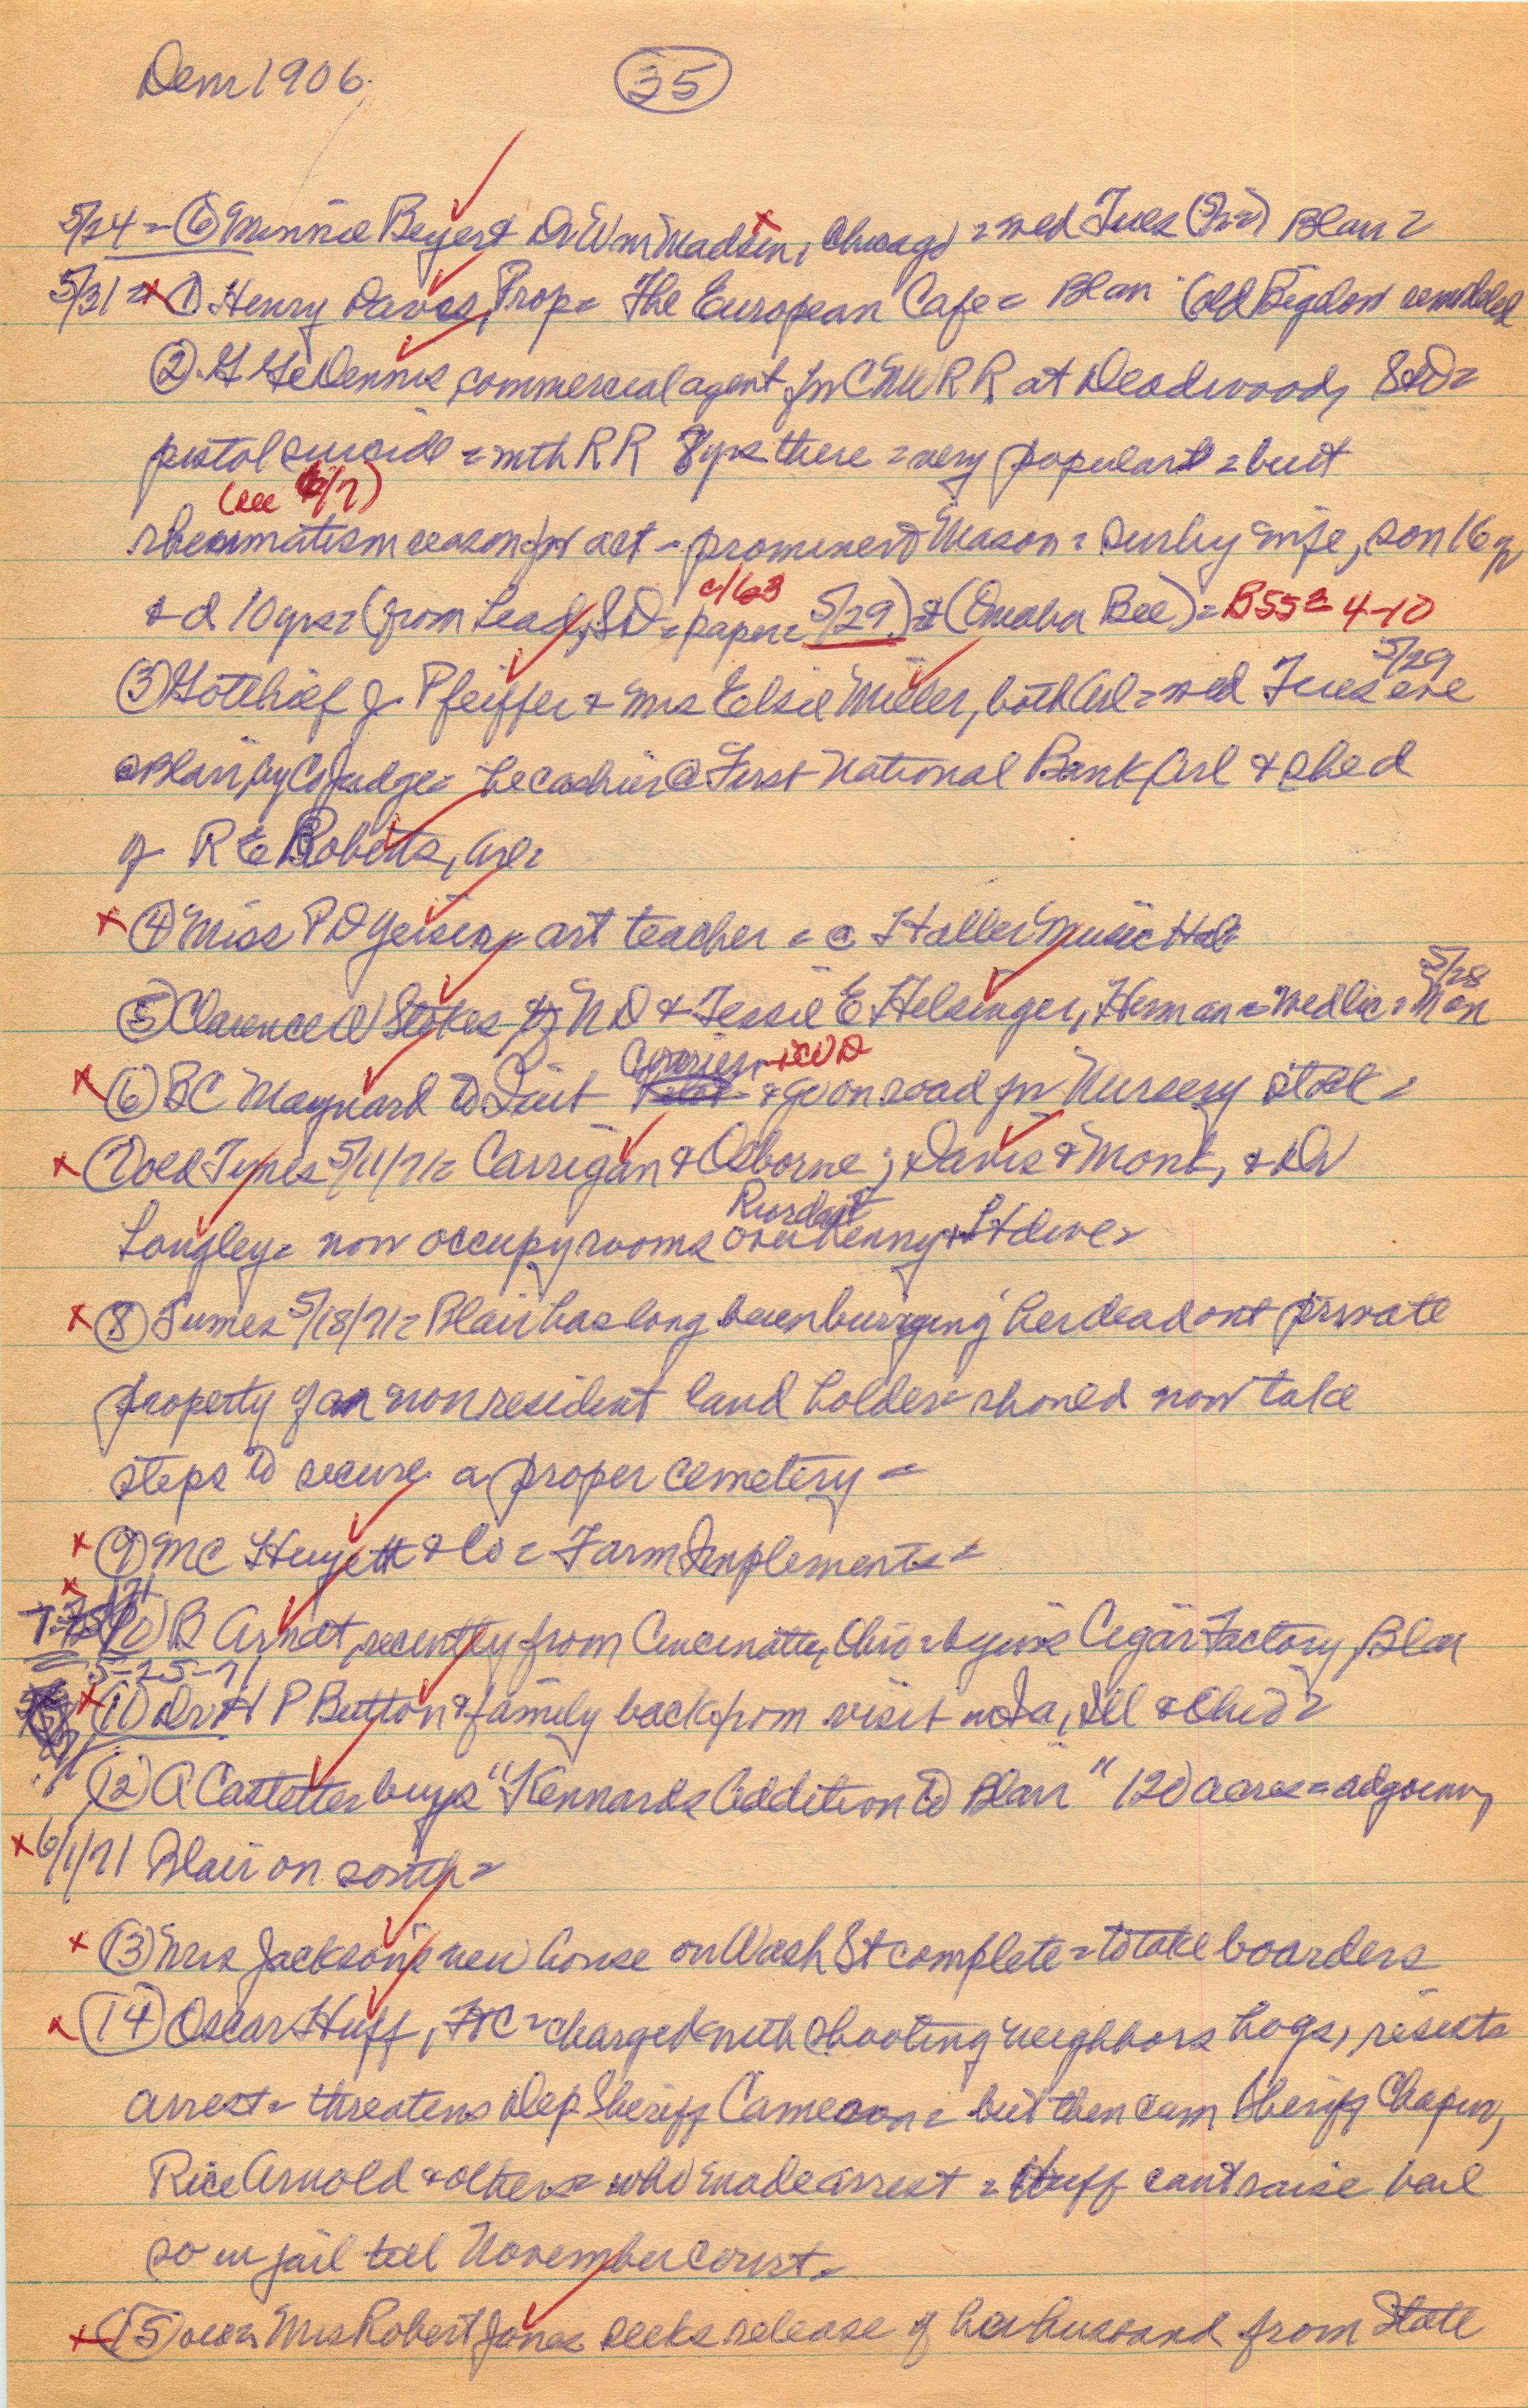 Dem 1906. 35
5/24 = 6 Minnie Beyer & Dr Wm Madsen, Chicago = wed Tues (5/22) Blair =
5/31 = 1 Henry Davis, Prop = The European Cafe = Blair (old Bigelow remodeled
2. Dennis, commercial agent for RR at Deadwood, SD =
pistol suicide = with RR 8 yrs there = very popular = but
(see 6/7)
rheumatism reason for act - prominent Mason = wife, son 16 yr
& d 10 yrs = (from Lead, SD = paper = 5/29) & (Omaha Bee) = B55 = 4-10
c/63
5/29
3 Gottlief J. Pfeiffer & Mrs Elsie Miller, both Arl = wed Tues eve
@ Blair by Co Judge = he cashier @ First National Bank, Arl & she d
of R E Roberts, Arl =
4 Miss P D art teacher = @ Haller Music Hal
5/28
5 Clarence W Stokes of ND & Tessie E Helsinger, Herman = wed lic = Mon
6 BC Maynard to Quit & go on road for Nursery stock =
7 Old Times 5/11/71 = Carrigan & Osborne; Davis & Monk, & Dr
Longley = now occupy rooms over Denny's & St dive =
8 Times 5/18/71 = Blair has long been burying her dead on private
property of an nonresident land holder = should now take
steps to secure a proper cemetery =
9 MC Huyett & Co = Farm Implements =
10 R Arndt, recently from Cincinatti, Ohio = begins Cigar Factory, Blair
5-25-71
11 Dr H P Button & family back from visit in Ia, Ill & Ohio =
12 A Castetter buys "Kennards Addition to Blair" 120 acres = adjoining
6/1/71 Blair on south =
13 Mrs Jackson's new house on Wash St complete = to take boarders
14 Oscar Huff, FtC = charged with shooting neighbors hogs, resists
arrest = threatens Dep Sheriff Cameron = but then cam Sheriff Chapin,
Rice Arnold & others = who made arrest = Huff cant raise bail
so in jail till November court =
15 Mrs Robert Jones seeks release of her husband from State